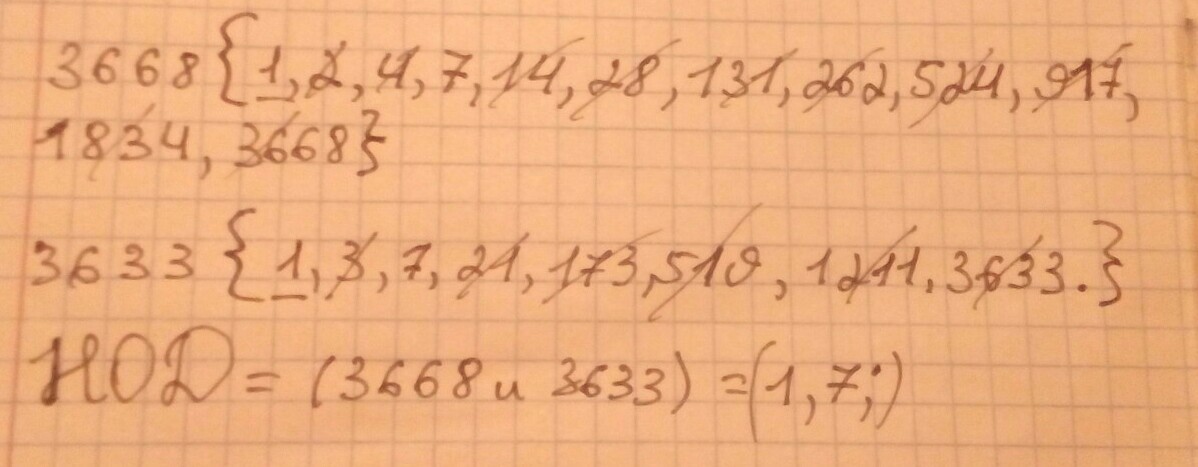 3668 {1, 2, 4, 7, 14, 28, 131, 262, 524, 917,
1834, 3668}
3633 {1, 3, 7, 21, 173, 519, 1211, 3633.}
НОД = (3668 и 3633) = (1, 7;)